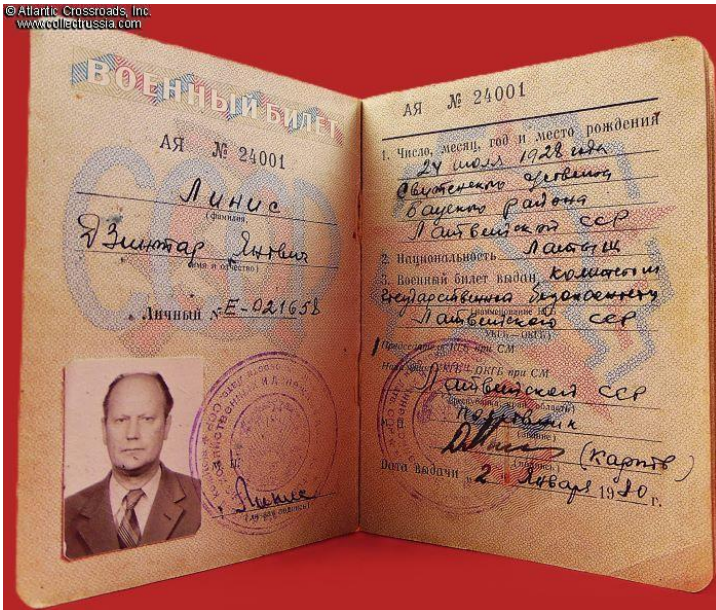 © Atlantic Crossroads, Inc.
www.collectrussia.com
ВОЕННЫЙ БИЛЕТ
АЯ № 24001
Линис
(фамилия,
Дзинтар Янович
имя и отчество)
Личный № Е-021658
М. П.
Линис
(личная подпись)
АЯ № 24001
1. Число, месяц, год и место рождения
24 июля 1928 года
Бауского района
Латвийской ССР
2. Национальность Латыш
3. Военный билет выдан Комитетом
государственной безопасности
Латвийского ССР
(наименование КГБ,
УКГБ—ОКГБ)
Председатель КГБ при СМ
Начальник УКГБ, ОКГБ при СМ
Латвийской ССР
(республика, край, область)
М. П. полковник
(звание)
(подпись)
Дата выдачи „2" Января 1980 г.